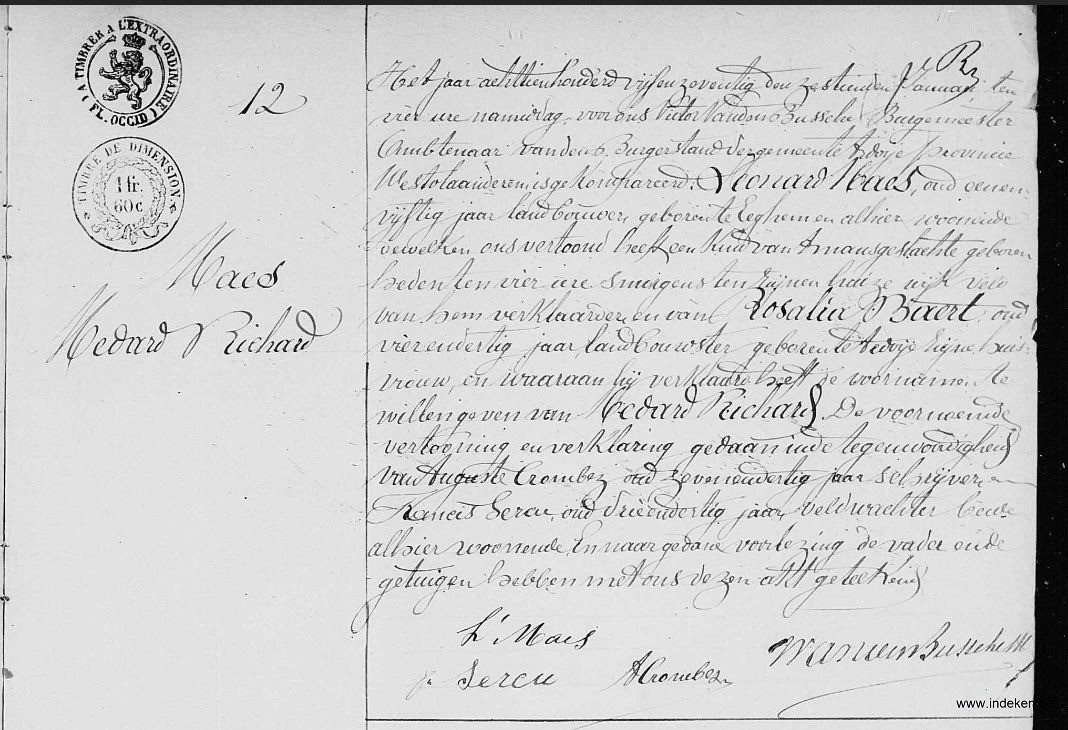 TIMBRE A L'EXTRAORDINAIRE
FL. OCCID
TIMBRE DE DIMENSION
1 fr.
60 c
12
Maes
Medard Richard
Het jaar achttienhonderd vijfenzeventig den zestienden Januarij ten
vier ure namiddag, voor ons Victor Vanden Bussche Burgemeester
Ambtenaar van den Burgerstand der gemeente Ardoije provincie
Westvlaanderen is gekompareerd: Leonard Maes, oud eenen
vijftig jaar landbouwer, geboren te Eeghem en alhier woonende
dewelken ons vertoond heeft een kind van 't mansgeslachte geboren
heden ten vier ure smorgens ten zijnen huize wijk veld
van hem verklaarder en van Rosalia Bixert, oud
vierendertig jaar landbouwster geboren te Ardoije zijne huis-
vrouw, en waaraan hij verklaard heeft de voorname te
willen geven van Medard Richard. De voornoemde
vertooning en verklaring gedaan in de tegenwoordigheid
van Auguste Crombez oud zevenendertig jaar schrijver, en
Francis Sercu, oud drieendertig jaar, veldwachter beide
alhier woonende. En naar gedane voorlezing de vader ende
getuigen hebben met ons dezen akt geteekend
L' Maes
Sercu
ACrombez
VVandenBussche
www.indeken